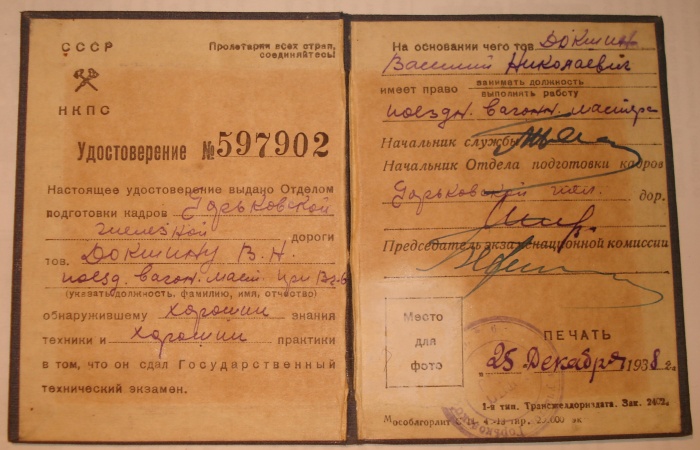 СССР
Пролетарии всех стран,
соединяйтесь!
НКПС
Удостоверение №597902
Настоящее удостоверение выдано Отделом
подготовки кадров Горьковской
железной дороги
тов. Докшину В. Н.
поезд. вагон. маст. при
(указать должность, фамилию, имя, отчество)
обнаружившему хорошии знания
техники и хорошии практики
в том, что он сдал Государственный
технический экзамен.
На основании чего тов Докшин
Василий Николаевич
имеет право занимать должность
выполнять работу
поездн. вагонн. мастера
Начальник службы
Начальник Отдела подготовки кадров
Горьковской жел. дор.
Председатель экзаменационной комиссии
Место
для
фото
ПЕЧАТЬ
"25 Декабря 1938 г.
1-я тип. Трансжелдориздата. Зак.
Мособлгорлит тир. 25.000 эк